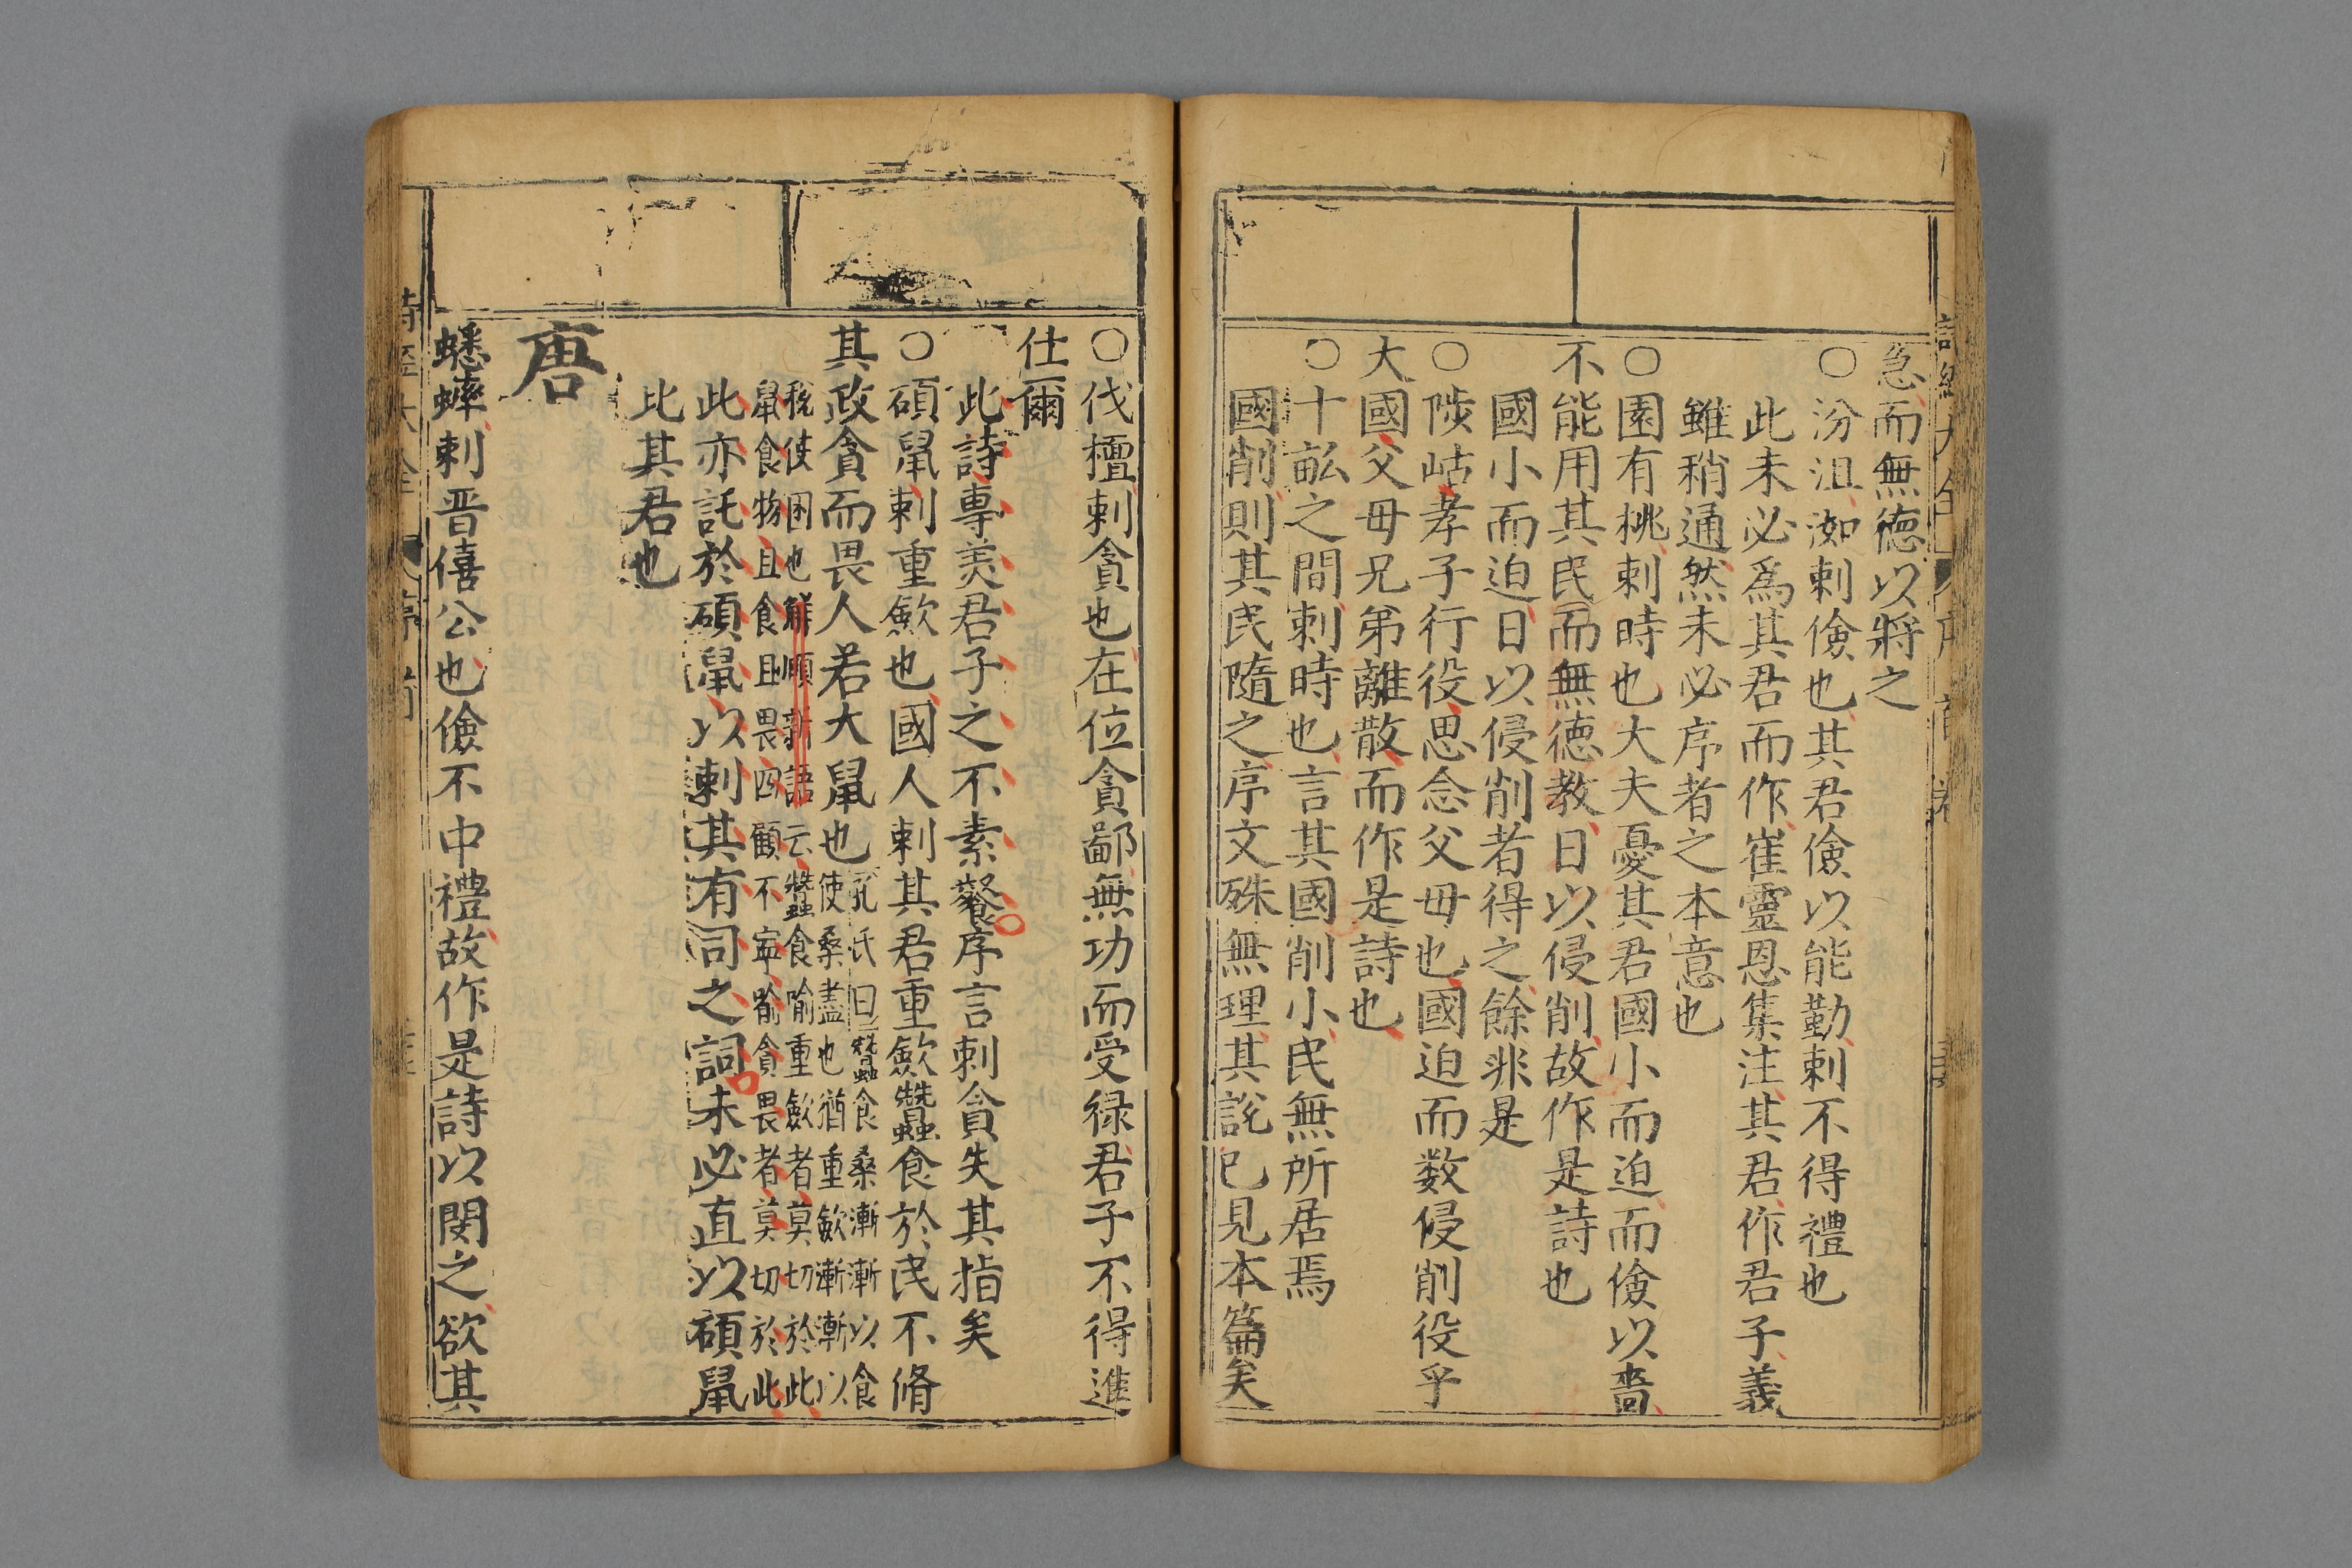 急而無徳以將之
○汾沮洳刺儉也其君儉以能勤刺不得禮也
此未必爲其君而作崔靈恩集注其君作君子義
雖稍通然未必序者之本意也
○園有桃刺時也大夫憂其君國小而迫而儉以嗇
不能用其民而無徳教日以侵削故作是詩也
國小而迫日以侵削者得之餘非是
○陟岵孝子行役思念父母也國迫而数侵削役乎
大國父母兄弟離散而作是詩也
○十畝之間刺時也言其國削小民無所居焉
國削則其民隨之序文殊無理其說已見本篇矣
○伐檀刺貪也在位貪鄙無功而受禄君子不得進
仕爾
此詩專美君子之不素餐序言刺貪失其指矣
○碩鼠刺重歛也國人刺其君重歛蠶食於民不脩
其政貪而畏人若大鼠也
孔氏曰蠶食桑漸漸以食
使桑盡也猶重歛漸漸以
稅使困也解頥新語云蠶食喻重歛者莫切於此
鼠食物且食且畏四顧不寧喻貪畏者莫切於此
此亦託於碩鼠以刺其有司之詞未必直以碩鼠
比其君也
唐
蟋蟀刺晋僖公也儉不中禮故作是詩以閔之欲其